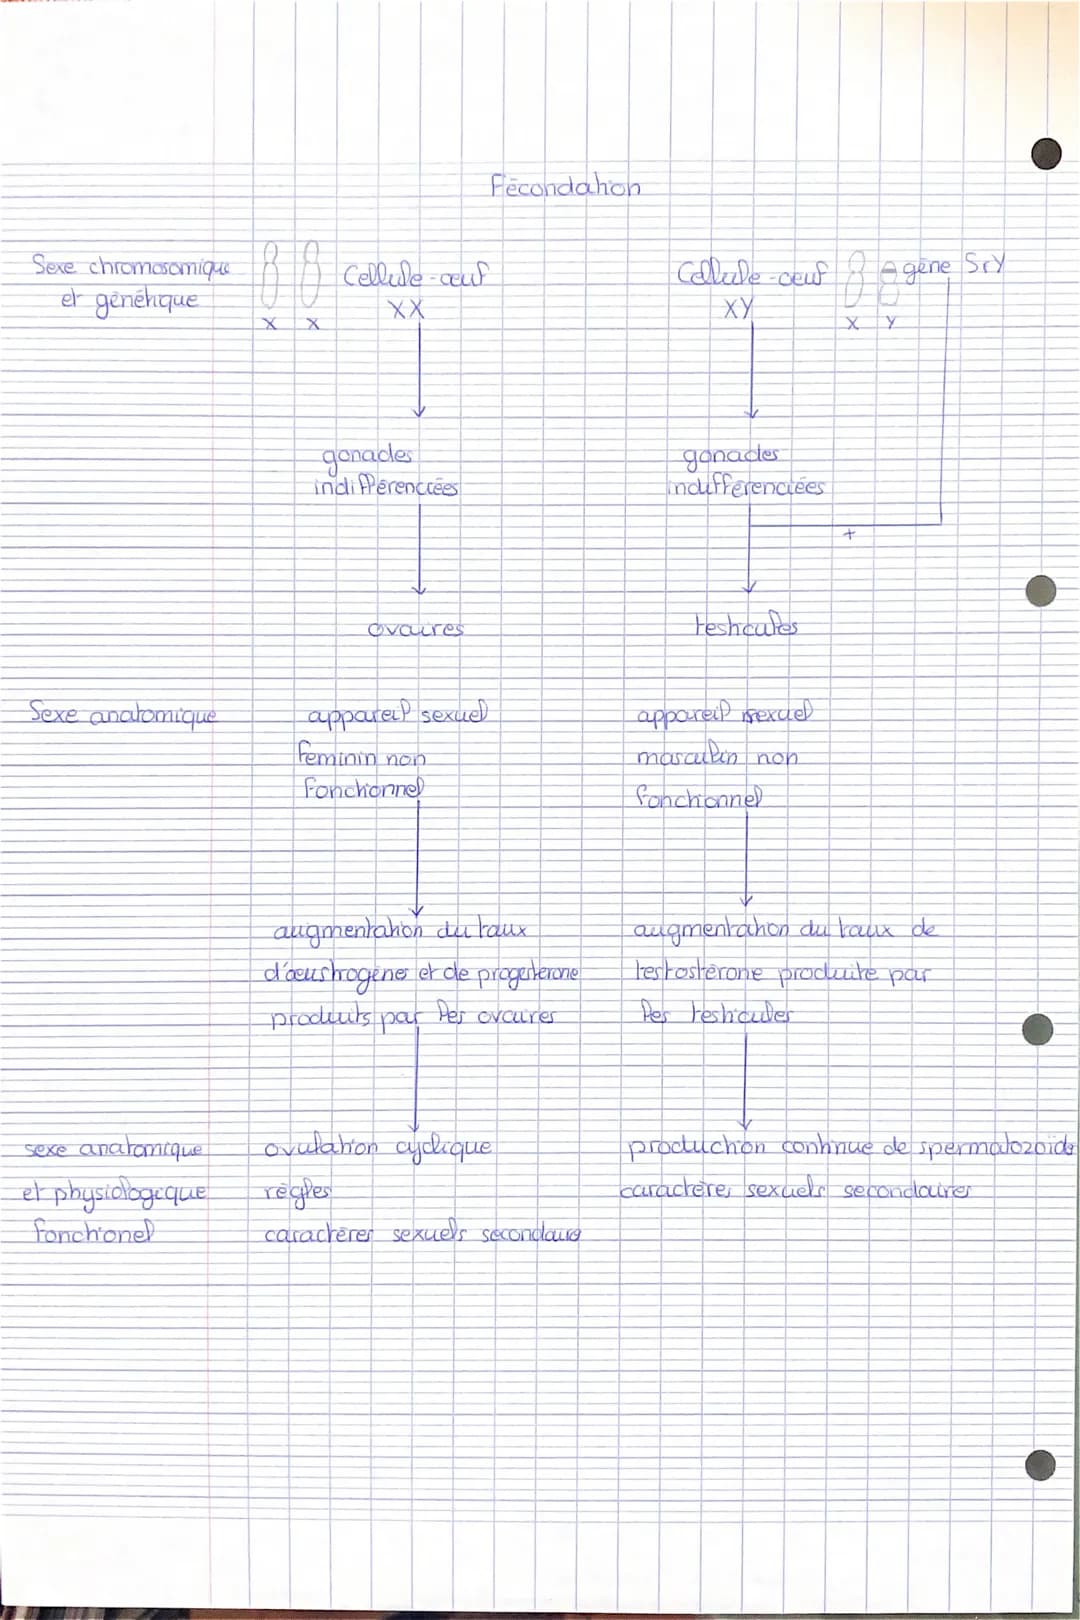 Fécondation
Sexe chromosomique
et génétique
X X
Cellule-œuf
XX
Cellule-œuf
XY
X Y
gène SrY
gonades
indifférenciées
gonades
indifférenciées
+
ovaires
testicules
Sexe anatomique
appareil sexuel
féminin non
fonctionnel
appareil sexuel
masculin non
fonctionnel
augmentation du taux
d'œustrogènes et de progesterone
produits par les ovaires
augmentation du taux de
testostérone produite par
les testicules
sexe anatomique
et physiologique
fonctionel
ovulation cyclique
règles
caractères sexuels secondaires
production continue de spermatozoïde
caractères sexuels secondaires